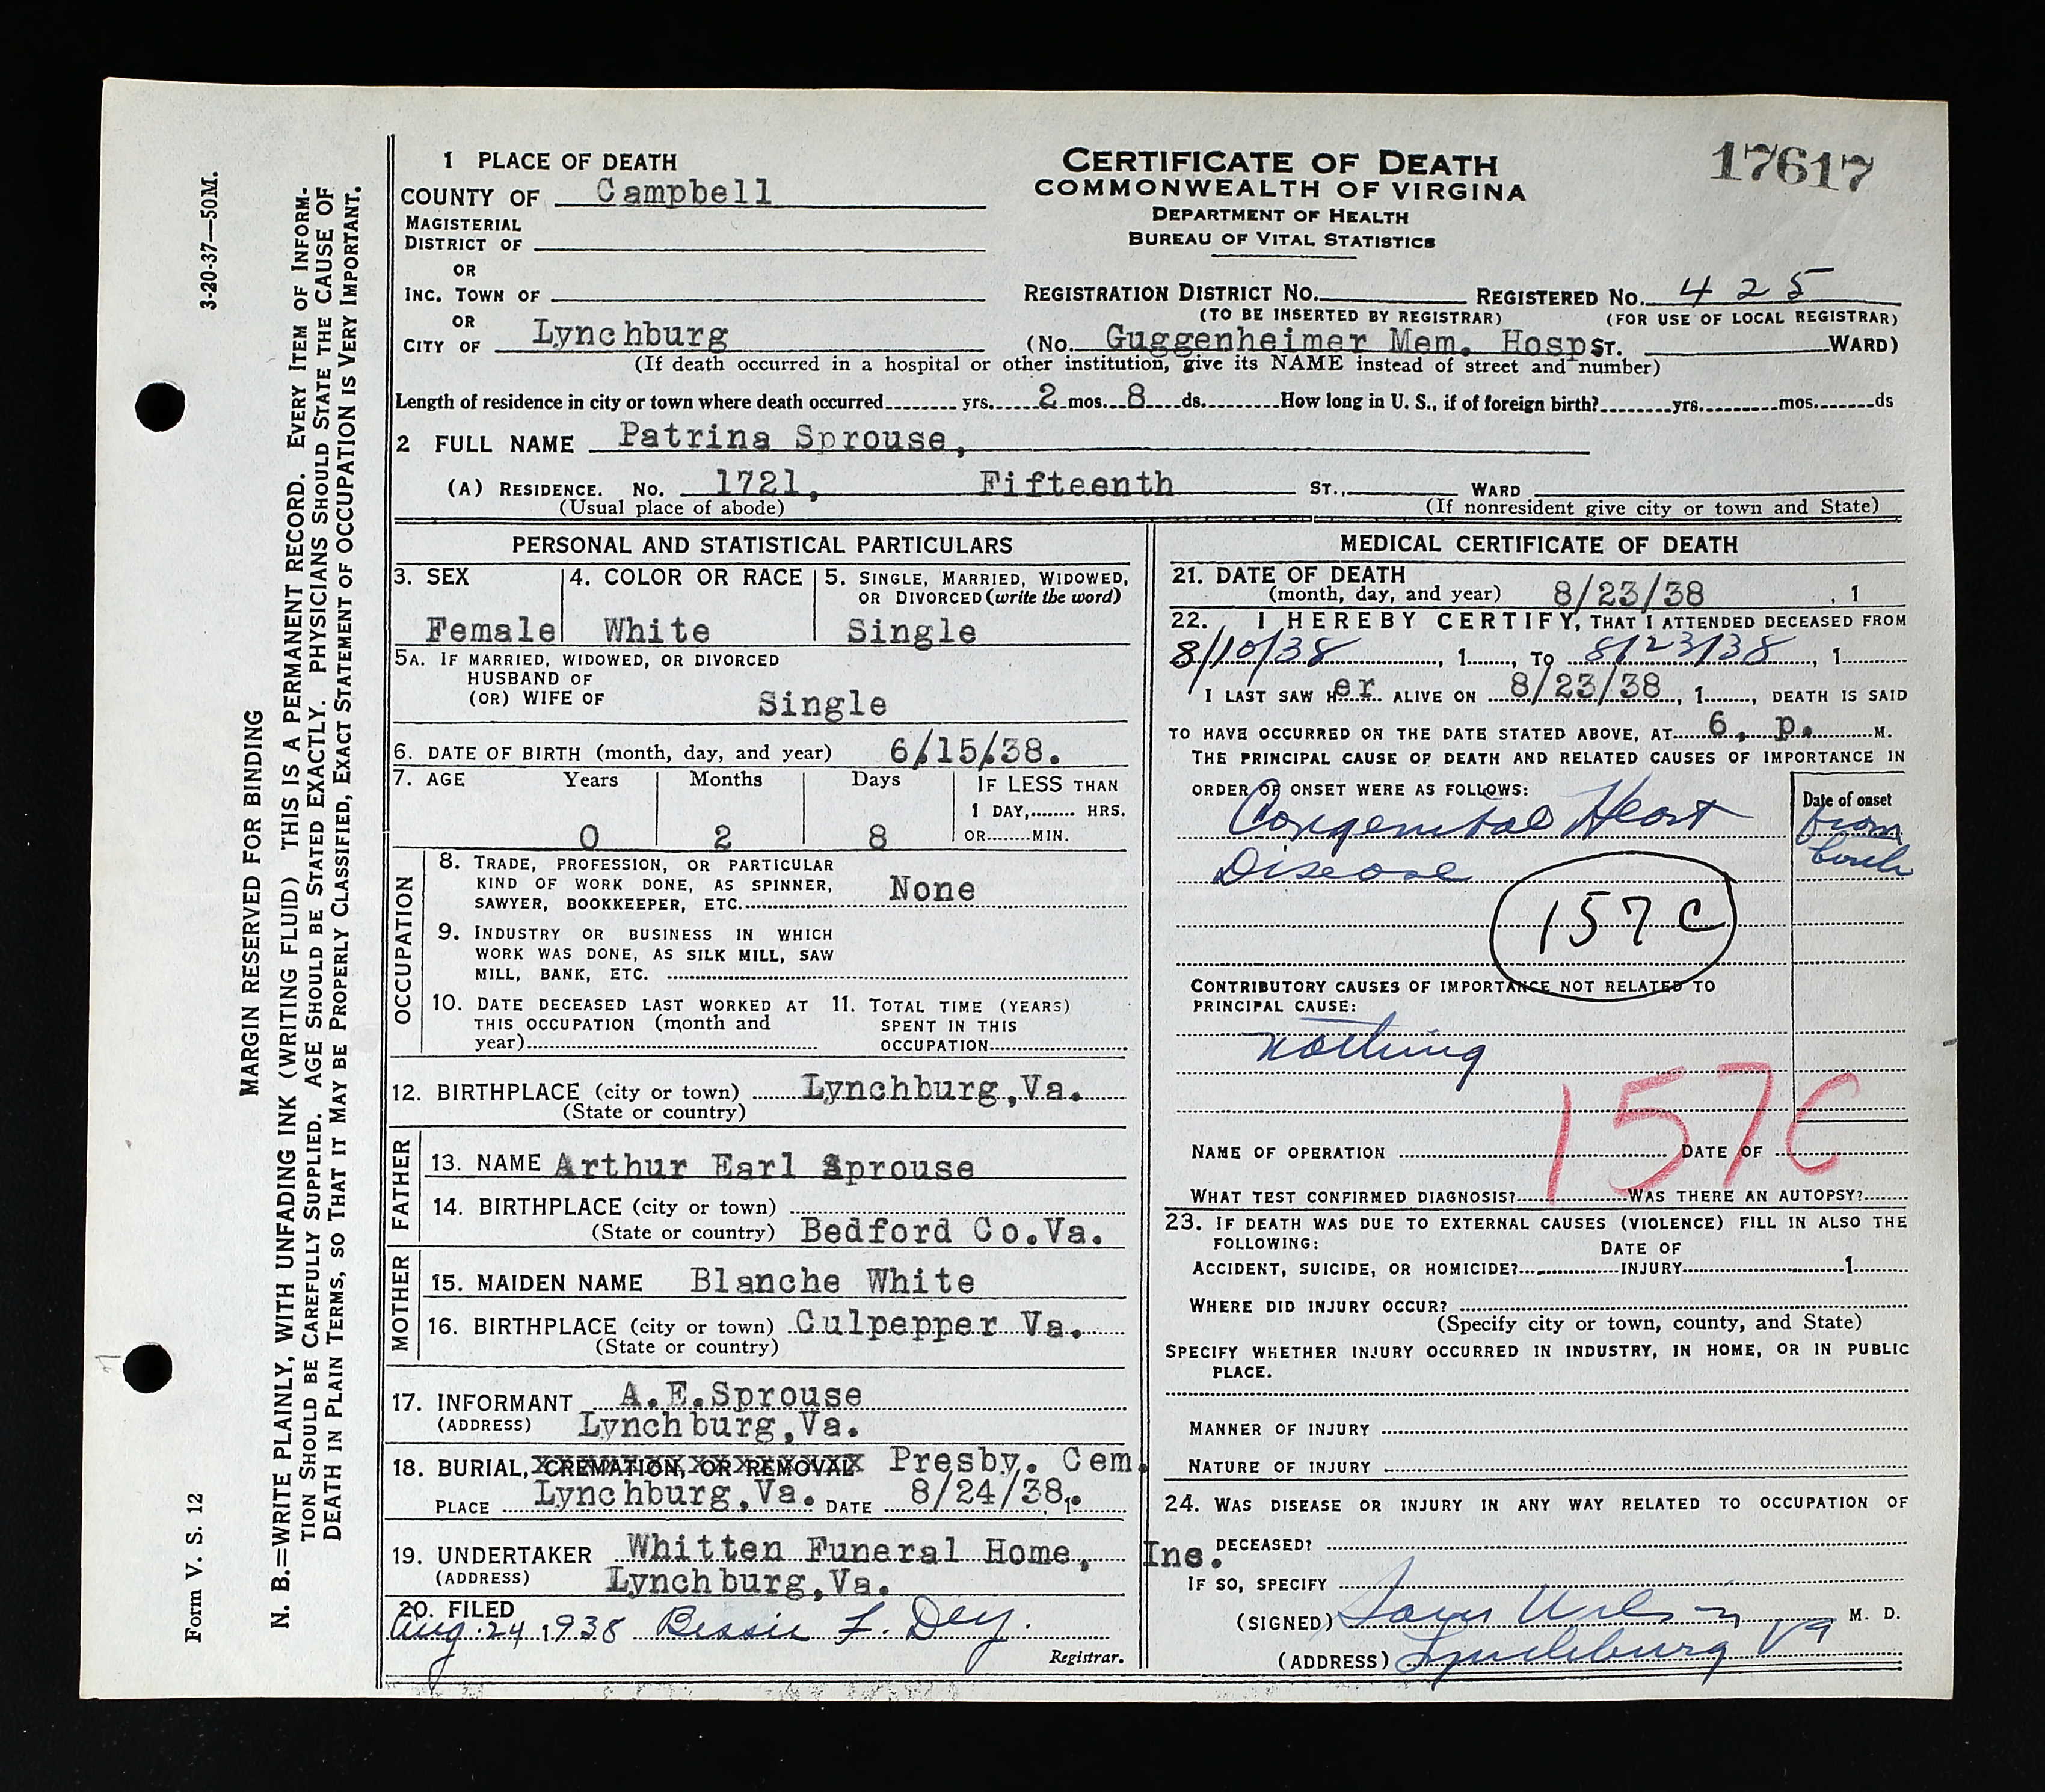 3-20-37—50M.
MARGIN RESERVED FOR BINDING
N. B.=WRITE PLAINLY, WITH UNFADING INK (WRITING FLUID) THIS IS A PERMANENT RECORD. EVERY ITEM OF INFORM-
TION SHOULD BE CAREFULLY SUPPLIED. AGE SHOULD BE STATED EXACTLY. PHYSICIANS SHOULD STATE THE CAUSE OF
DEATH IN PLAIN TERMS, SO THAT IT MAY BE PROPERLY CLASSIFIED, EXACT STATEMENT OF OCCUPATION IS VERY IMPORTANT.
Form V. S. 12
1 PLACE OF DEATH
COUNTY OF Campbell
MAGISTERIAL
DISTRICT OF
OR
INC. TOWN OF
OR
CITY OF Lynchburg
CERTIFICATE OF DEATH
COMMONWEALTH OF VIRGINA
DEPARTMENT OF HEALTH
BUREAU OF VITAL STATISTICS
17617
REGISTRATION DISTRICT NO. REGISTERED NO. 425
(TO BE INSERTED BY REGISTRAR) (FOR USE OF LOCAL REGISTRAR)
(No. Guggenheimer Mem. Hosp ST. WARD)
(If death occurred in a hospital or other institution, give its NAME instead of street and number)
Length of residence in city or town where death occurred yrs. 2 mos. 8 ds. How long in U. S., if of foreign birth? yrs. mos. ds
2 FULL NAME Patrina Sprouse,
(A) RESIDENCE. NO. 1721, Fifteenth ST., WARD
(Usual place of abode) (If nonresident give city or town and State)
PERSONAL AND STATISTICAL PARTICULARS
3. SEX 4. COLOR OR RACE 5. SINGLE, MARRIED, WIDOWED,
OR DIVORCED (write the word)
Female White Single
5A. IF MARRIED, WIDOWED, OR DIVORCED
HUSBAND OF
(OR) WIFE OF Single
6. DATE OF BIRTH (month, day, and year) 6/15/38.
7. AGE Years Months Days IF LESS THAN
1 DAY, HRS.
0 2 8 OR MIN.
OCCUPATION
8. TRADE, PROFESSION, OR PARTICULAR
KIND OF WORK DONE, AS SPINNER,
SAWYER, BOOKKEEPER, ETC. None
9. INDUSTRY OR BUSINESS IN WHICH
WORK WAS DONE, AS SILK MILL, SAW
MILL, BANK, ETC.
10. DATE DECEASED LAST WORKED AT 11. TOTAL TIME (YEARS)
THIS OCCUPATION (month and SPENT IN THIS
year) OCCUPATION
12. BIRTHPLACE (city or town) Lynchburg,Va.
(State or country)
FATHER
13. NAME Arthur Earl Sprouse
14. BIRTHPLACE (city or town)
(State or country) Bedford Co.Va.
MOTHER
15. MAIDEN NAME Blanche White
16. BIRTHPLACE (city or town) Culpepper Va.
(State or country)
17. INFORMANT A.E.Sprouse
(ADDRESS) Lynchburg,Va.
18. BURIAL, CREMATION, OR REMOVAL Presby. Cem.
PLACE Lynchburg,Va. DATE 8/24/38, 1.
19. UNDERTAKER Whitten Funeral Home, Inc.
(ADDRESS) Lynchburg,Va.
20. FILED
Aug. 24 1938 Bessie F. Dey.
Registrar.
MEDICAL CERTIFICATE OF DEATH
21. DATE OF DEATH
(month, day, and year) 8/23/38 , 1
22. I HEREBY CERTIFY, THAT I ATTENDED DECEASED FROM
8/10/38, 1, TO 8/23/38, 1
I LAST SAW Her ALIVE ON 8/23/38, 1, DEATH IS SAID
TO HAVE OCCURRED ON THE DATE STATED ABOVE, AT 6, p. M.
THE PRINCIPAL CAUSE OF DEATH AND RELATED CAUSES OF IMPORTANCE IN
ORDER OF ONSET WERE AS FOLLOWS: Date of onset
Congenital Heart from
Disease birth
157C
CONTRIBUTORY CAUSES OF IMPORTANCE NOT RELATED TO
PRINCIPAL CAUSE:
nothing
157C
NAME OF OPERATION DATE OF
WHAT TEST CONFIRMED DIAGNOSIS? WAS THERE AN AUTOPSY?
23. IF DEATH WAS DUE TO EXTERNAL CAUSES (VIOLENCE) FILL IN ALSO THE
FOLLOWING: DATE OF
ACCIDENT, SUICIDE, OR HOMICIDE? INJURY 1
WHERE DID INJURY OCCUR?
(Specify city or town, county, and State)
SPECIFY WHETHER INJURY OCCURRED IN INDUSTRY, IN HOME, OR IN PUBLIC
PLACE.
MANNER OF INJURY
NATURE OF INJURY
24. WAS DISEASE OR INJURY IN ANY WAY RELATED TO OCCUPATION OF
DECEASED?
IF SO, SPECIFY
(SIGNED) M. D.
(ADDRESS) Lynchburg Va